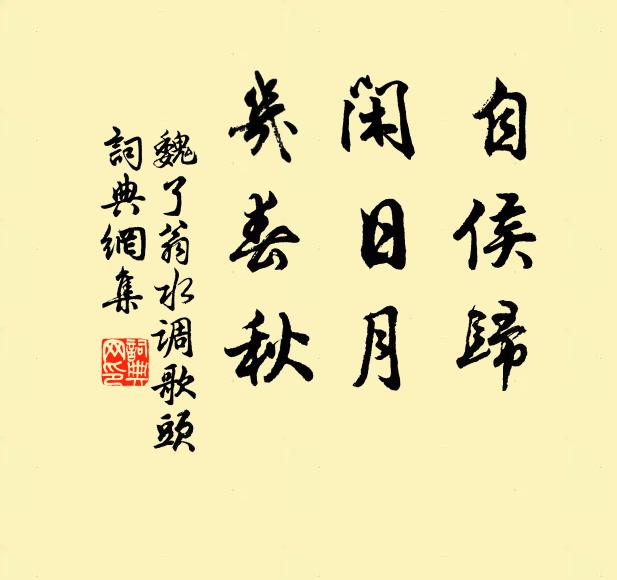 自侯歸
閑日月
幾春秋
魏了翁水调歌頭
詞典網集
詞典
网印